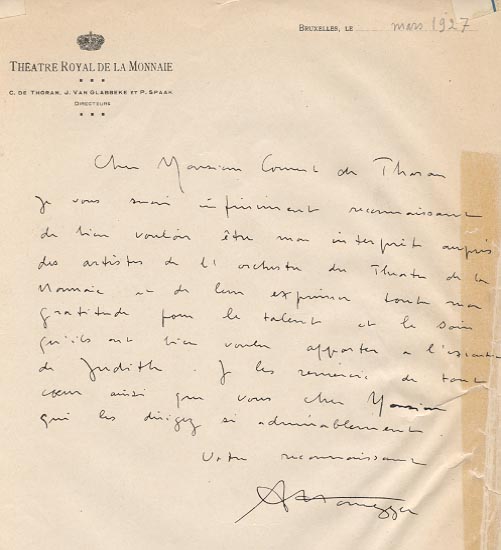 BRUXELLES, LE mars 1927
THÉATRE ROYAL DE LA MONNAIE
C. DE THORAN, J. VAN GLABBEKE ET P. SPAAK
DIRECTEURS
Cher Monsieur Corneil de Thoran
Je vous serai infiniment reconnaissant
de bien vouloir être mon interprète auprès
des artistes de l'orchestre du Theatre de la
Monnaie et de leur exprimer toute ma
gratitude pour le talent et le soin
qu'ils ont bien voulu apporter a l'execution
de Judith. Je les remercie de tout
cœur ainsi que vous cher Monsieur
qui les dirigez si admirablement.
Votre reconnaissant
A Honegger